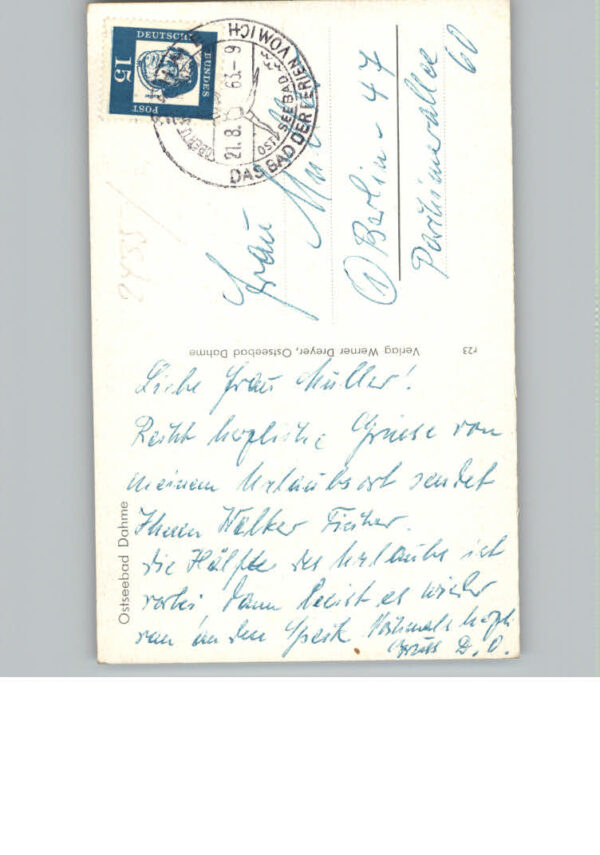 DEUTSCHE
BUNDES
POST
15
DAS BAD DER FERIEN VOM ICH
OSTSEEBAD
21.8. 63.-9
Frau
① Berlin - 47
Parchimerallee
60
Verlag Werner Dreyer, Ostseebad Dahme
r23
Ostseebad Dahme
Liebe Frau Müller!
Recht herzliche Grüsse von
meinem Urlaubsort sendet
Ihnen Walter Fischer.
die Hälfte des Urlaubs ist
vorbei dann heisst es wieder
ran an den Speck Nochmals herzl.
Gruss D. O.